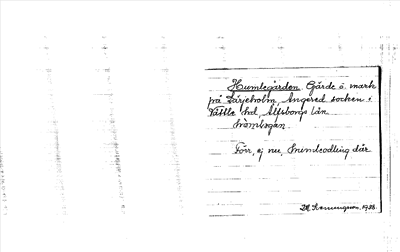 Humlegården Gärde o. mark
på Lärjeholm, Angered socken i
Vättle hd, Älfsborgs län.
Förr, ej nu, humleodling där